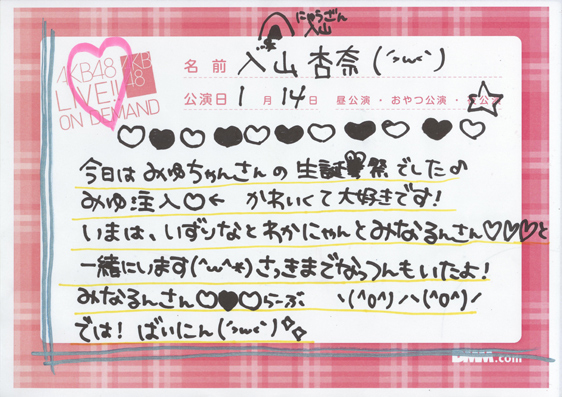 にゃうざん
入山
AKB48
LIVE!!
ON DEMAND
AKB
48
名前 入山杏奈(´›ω‹｀)
公演日 1月14日 昼公演・おやつ公演・夜公演
♡♥♡♥♡♥♡♥♡♥♡
今日はみゆちゃんさんの生誕祭でした♪
みゆ注入♡← かわいくて大好きです!
いまは、いずりなとわかにゃんとみなるんさん♡♡♡と
一緒にいます(^ω^*)さっきまでなっつんもいたよ!
みなるんさん♡♥♡らーぶ ヽ(^o^)ノヽ(^o^)ノ
では!ばいにん(´›ω‹｀)
DMM.com